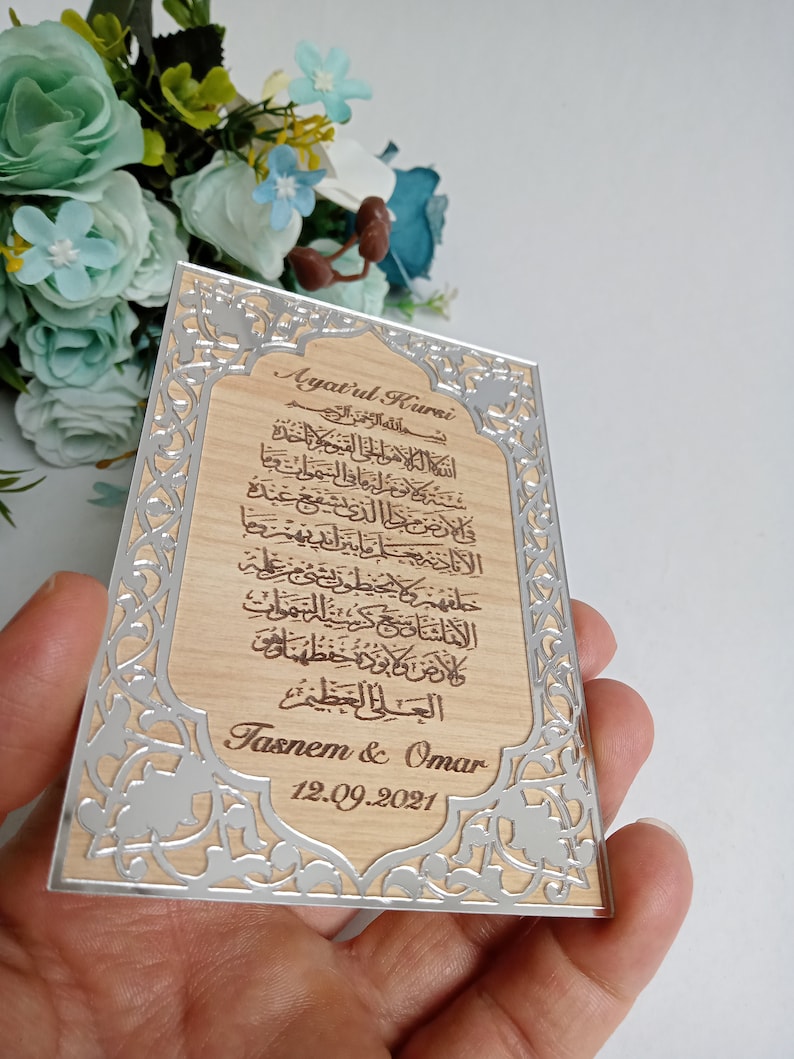 Ayat'ul Kursi
بسم الله الرحمن الرحيم
الله لا إله إلا هو الحي القيوم لا تأخذه
سنة ولا نوم له ما في السموات وما
في الأرض من ذا الذي يشفع عنده
إلا بإذنه يعلم ما بين أيديهم وما
خلفهم ولا يحيطون بشيء من علمه
إلا بما شاء وسع كرسيه السموات
والأرض ولا يؤده حفظهما وهو
العلي العظيم
Tasnem & Omar
12.09.2021